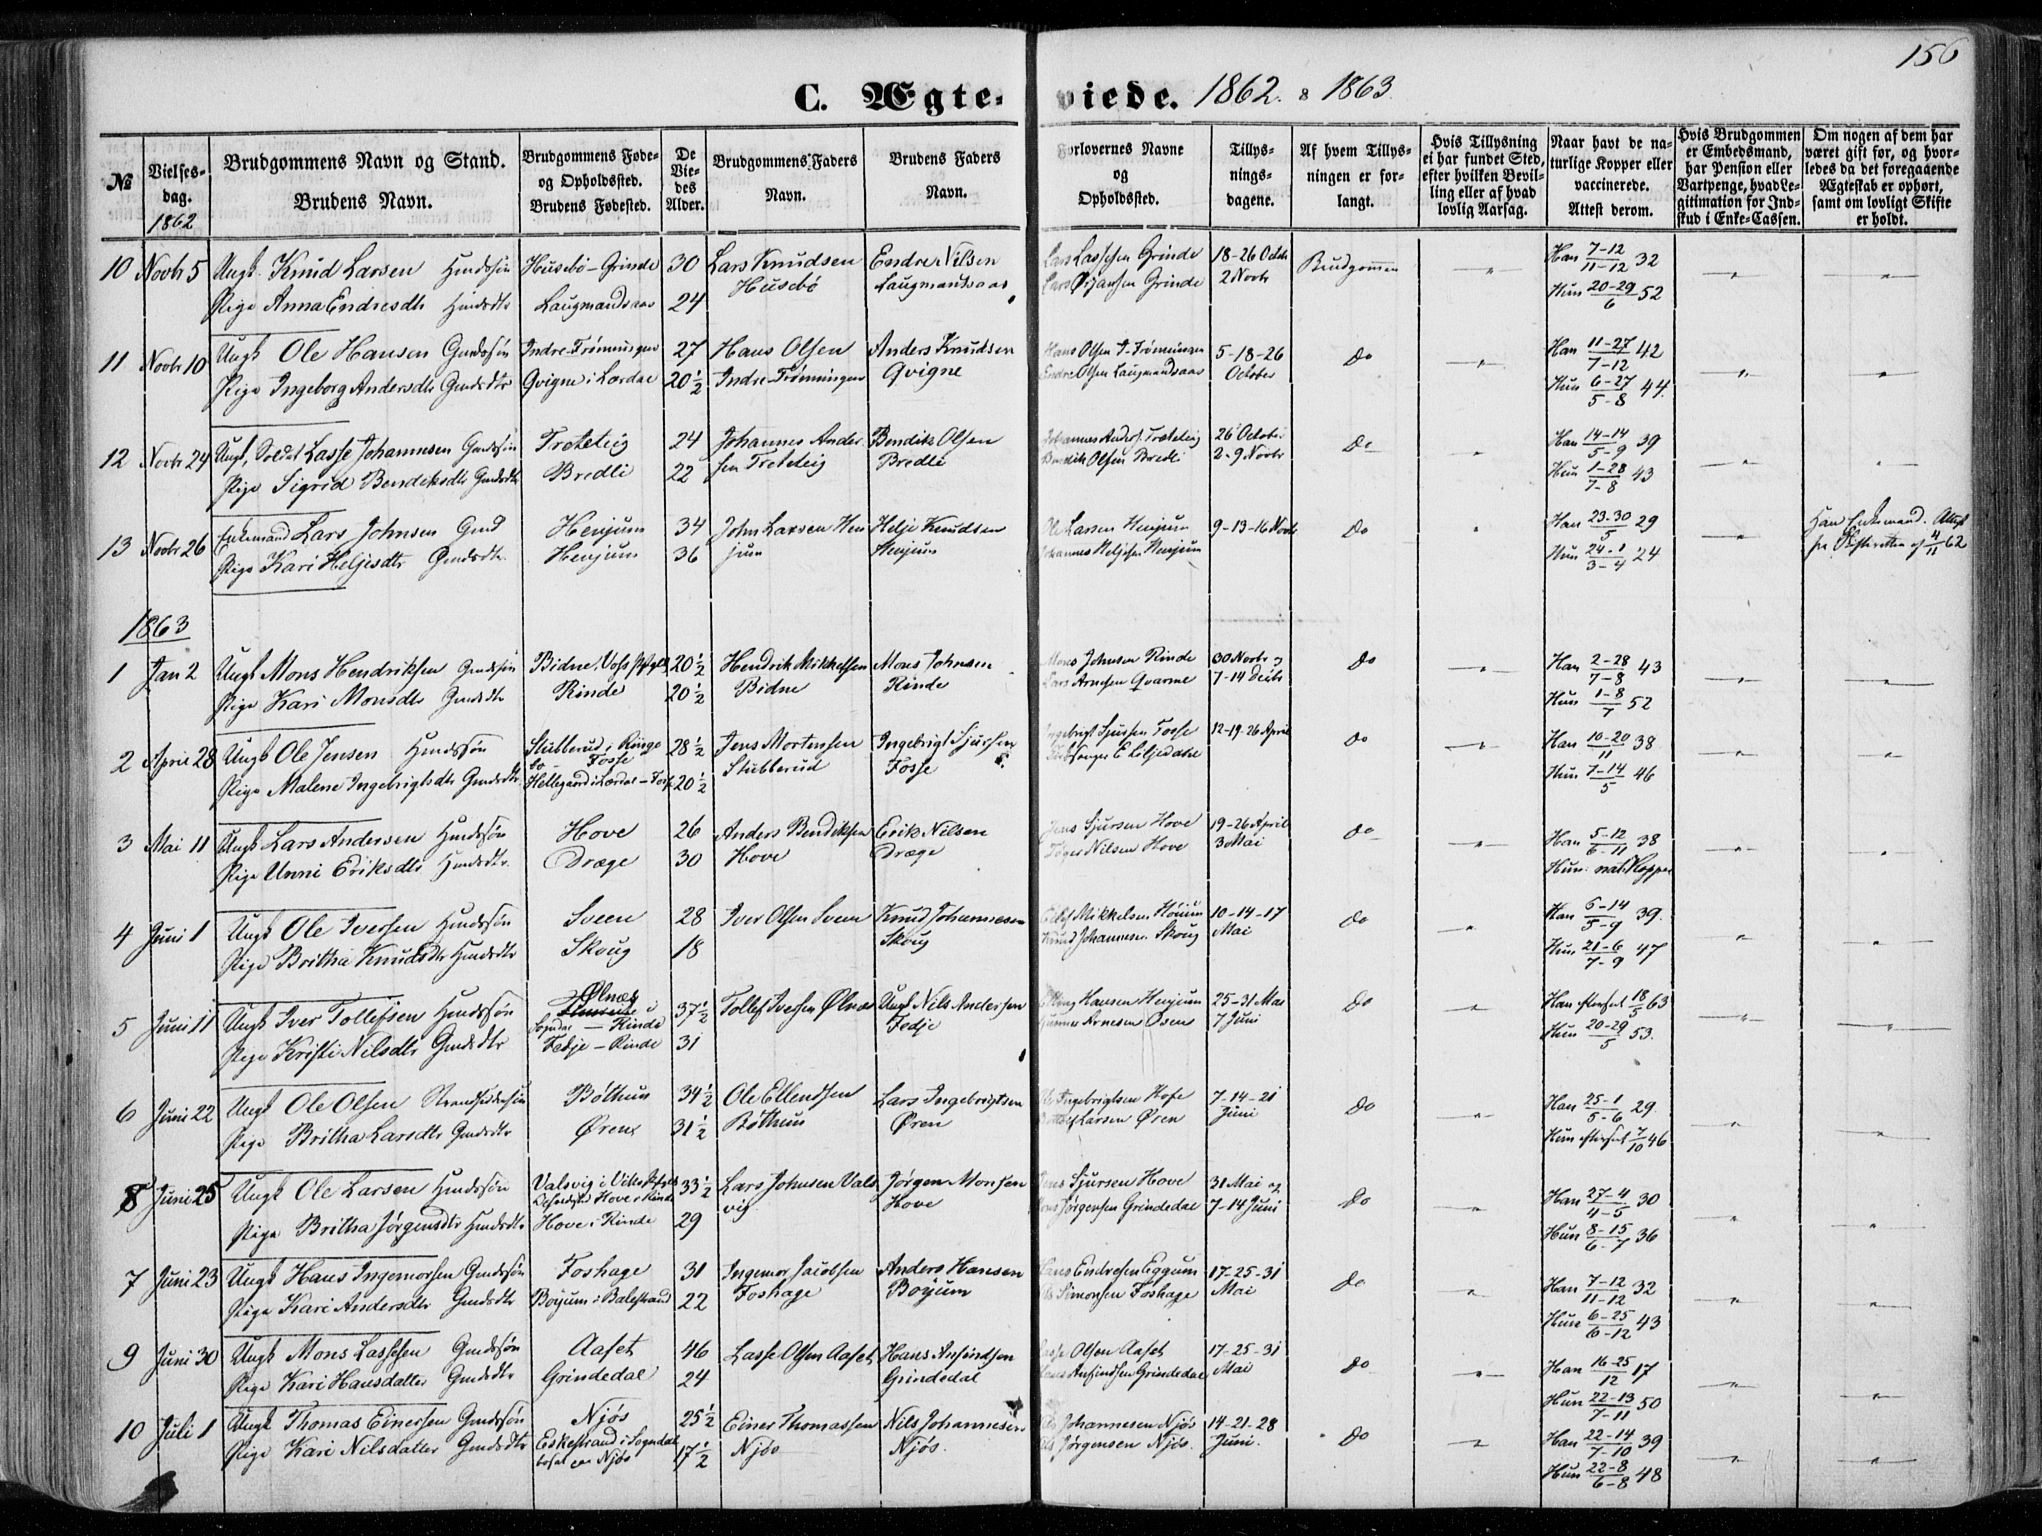 156
C. Ægteviede. 1862. & 1863.
№
Vielsesdag. 1862
Brudgommens Navn og Stand. Brudens Navn.
Brudgommens Føde- og Opholdssted. Brudens Fødested.
De Viedes Alder.
Brudgommens Faders Navn.
Brudens Faders Navn.
Forlovernes Navne og Opholdssted.
Tillysningsdagene.
Af hvem Tillysningen er forlangt.
Hvis Tillysning ei har fundet Sted, efter hvilken Bevilling eller af hvad lovlig Aarsag.
Naar havt de naturlige Kopper eller vaccinerede. Attest derom.
Hvis Brudgommen er Embedsmand, har Pension eller Vartpenge, hvad Legitimation for Indskud i Enke-Cassen.
Om nogen af dem har været gift før, og hvorledes da det foregaaende Ægteskab er ophørt, samt om lovligt Skifte er holdt.
10 Novbr 5 Ungk. Knud Larsen Husebø-Grinde 30 Lars Knudsen Endre Nilsen Lars Lassesen Grinde 18-26 Octbr Brudgommen Han 7-12/11-12 32
Pige Anna Endresdtr Laugmandsaas 24 Husebø Laugmandsaas Lars Ørjansen Grinde 2 Novbr Hun 20-29/6 52
11 Novbr 10 Ungk Ole Hansen Gmdssøn Indre-Frønningen 27 Hans Olsen Anders Knudsen Hans Olsen I-Frønningen 5-18-26 Do Han 11-27/7-12 42
Pige Ingeborg Andersdtr Gmdsdtr Qvigne i Lærdal 20½ Indre-Frønningen Qvigne Endre Olsen Laugmandsaas October Hun 6-27/5-8 44.
12 Novbr 24 Ungk, Soldat Lasse Johannesen Gmdssøn Treteteig 24 Johannes Ander- Bendik Olsen Johannes Anders. Treteteig 26 October Do Han 14-14/5-9 39
Pige Sigrid Bendiksdtr Gmdsdtr Bredli 22 sen Treteteig Bredli Bendik Olsen Bredli 2-9 Novbr Hun 1-28/7-8 43
13 Novbr 26 Enkemand Lars Johnsen Gmd Henjum 34 John Larsen Hen Helje Knudsen Ole Larsen Henjum 9-13-16 Novbr Do Han 23-30/5 29 Han Enkemand. Attest
Pige Kari Heljesdtr Gmdsdtr. Henjum 36 jum Henjum Johannes Heljesen Henjum Hun 24-1/3-4 24 fra Skifteretten af 4/11 62
1863
1 Jan 2 Ungk Mons Hendriksen Gmdssøn Bidne, Vosspstgjld 20½ Hendrik Mikkelsen Mons Johnsen Mons Johnsen Rinde 30 Novbr og Do Han 2-28/7-8 43
Pige Kari Monsdtr Gmdsdtr Rinde 20½ Bidne Rinde Lars Arnesen Qvarme 7-14 Decbr Hun 1-8/7 52
2 April 28 Ungk Ole Jensen Hmdssøn Stubberud i Ringe 28½ Jens Mortensen Ingebrigt Sjursen Ingebrigt Sjursen Fosse 12-19-26 April Do Han 10-20/11 38
bo - Fosse
Pige Malene Ingebrigtsdtr Gmdsdtr. Hellegaard i Lærdal-Fosse 20½ Stubberud Fosse E Liljedahl Hun 7-14/5 46
3 Mai 11 Ungk Lars Andersen Hmdssøn Hove 26 Anders Bendiksen Erik Nilsen Jens Sjursen Hove 19-26 April Do Han 5-12/6-11 38
Pige Unni Eriksdtr Hmdsdtr. Dræge 30 Hove Dræge Nilsen Hove 3 Mai Hun: nat. Kopper
4 Juni 1 Ungk Ole Iversen Hmdssøn Sveen 28 Iver Olsen Sveen Knud Johannesen Mikkelsen Høium 10-14-17 Do Han 6-14/5-9 39.
Pige Britha Knudsdtr Hmdsdtr Skoug 18 Skoug Knud Johannesen Skoug Mai Hun 21-6/7-9 47
5 Juni 11 Ungk Iver Tollefsen Hmdssøn Ølnæs i 37½ Tollef Iversen Ølnæs Ungk Nils Andersen Hansen Henjum 25-31 Mai Do Han efterset 18/5 63
Sogndal - Rinde
Pige Kristi Nilsdtr Gmdsdtr Fedje - Rinde 31 Fedje Arnesen Øsen 7 Juni Hun 20-29/5 53.
6 Juni 22 Ungk Ole Olsen Strandsidersøn Bøthun 34½ Ole Ellendsen Lars Ingebrigtsen Ingebrigtsen Hofe 7-14-21 Do Han 25-1/5-6 29.
Pige Britha Larsdtr Gmdsdtr Øren 31½ Bøthun Øren Larsen Øren Juni Hun efterset 7/10 46
8 Juni 25 Ungk Ole Larsen Hmdssøn Valsvig i Viks Pstgjld 33½ Lars Johnsen Vals Jørgen Monsen Jens Sjursen Hove 31 Mai og Do Han 27-4/4-5 30
Hove i Rinde
Pige Britha Jørgensdtr Hmdsdtr Hove i Rinde 29 vig Hove Jørgensen Grindedal 7-14 Juni Hun 8-15/6-7 36
7 Juni 23 Ungk Hans Ingemorsen Gmdssøn Foshage 31 Ingemor Jacobsen Anders Hansen Hans Endresen Eggum 17-25-31 Do Han 7-12/11-12 32
Pige Kari Andersdtr Gmdsdtr Bøyum i Balestrand 22 Foshage Bøyum Simonsen Foshage Mai Hun 6-25/6-12 43
9 Juni 30 Ungk Mons Lassesen Gmdssøn Aaset 46 Lasse Olsen Aaset Hans Anfindsen Lasse Olsen Aaset 17-25-31 Do Han 16-25/12 17
Pige Kari Hansdatter Gmdsdtr Grindedal 24 Grindedal Hans Anfindsen Grindedal Mai Hun 22-13/7-11 50
10 Juli 1 Ungk Thomas Einersen Gmdssøn Njøs 25½ Einer Thomassen Nils Johannesen Johannesen Njøs 14-21-28 Do Han 22-14/7-10 39
Pige Kari Nilsdatter Gmdsdtr Eskestrand i Sogndal 17½ Njøs Njøs. Jørgensen Njøs. Juni. Hun 22-8/6-8 48
bosat paa Njøs